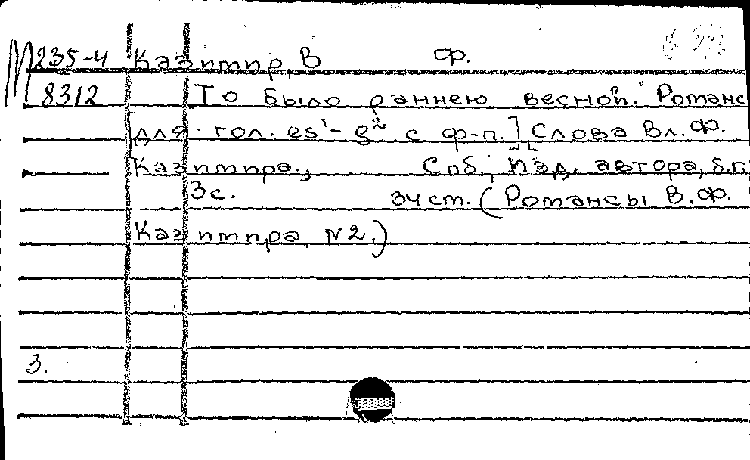 М 235-4 Казимир, В ф.
8312 То было раннею весной. Романс
[для гол. es¹-g² с ф-п.] Слова Вл. Ф.
Казимира., Спб, Изд. автора, б.г.
3 с. 34 см. (Романсы В.Ф.
Казимира, №2.)
3.